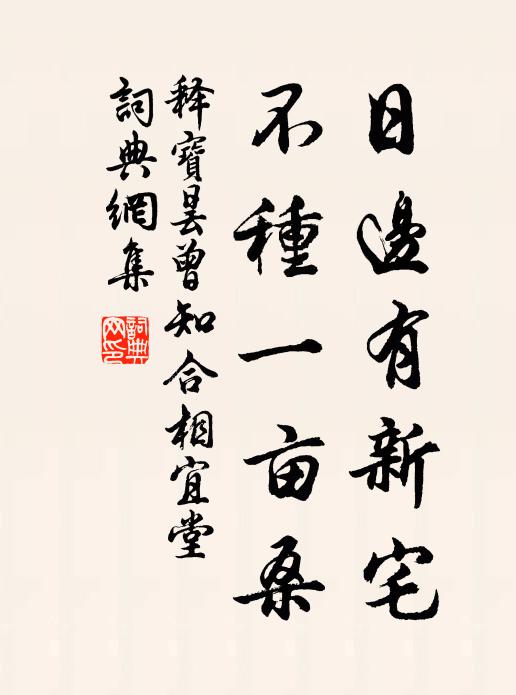 日邊有新宅
不種一亩桑
释寶曇曾知合相宜堂
詞典網集
詞典网印